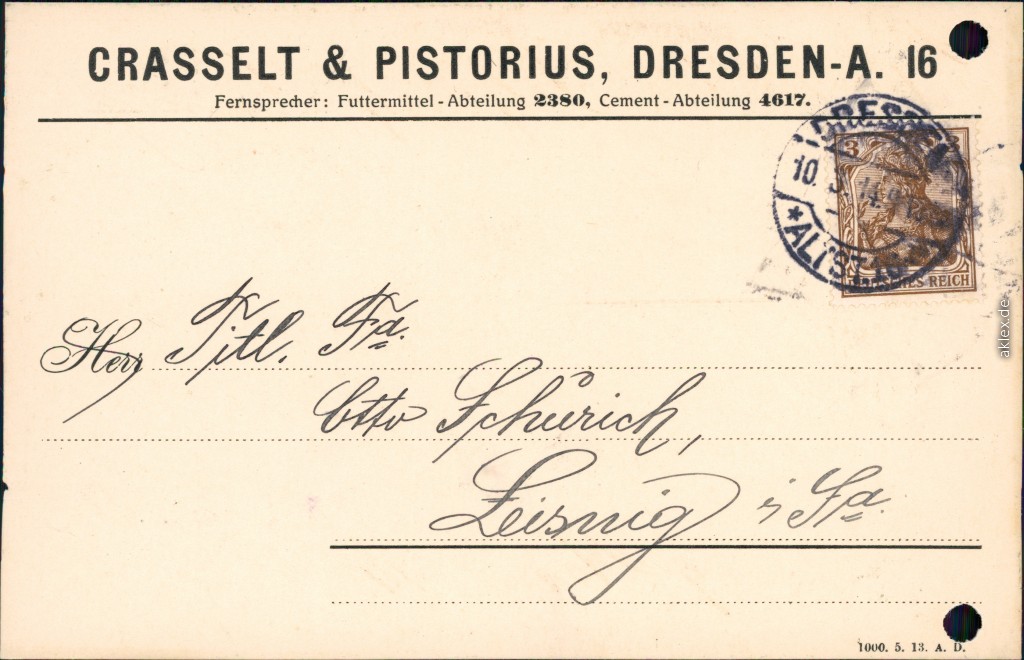 CRASSELT & PISTORIUS, DRESDEN-A. 16
Fernsprecher: Futtermittel-Abteilung 2380, Cement-Abteilung 4617.
DRESDEN
3 3
10.
* ALTSTADT
REICH
Herr Titl. Fa.
Otto Schürich,
Leisnig i/Sa.
1000. 5. 13. A. D.
aklex.de